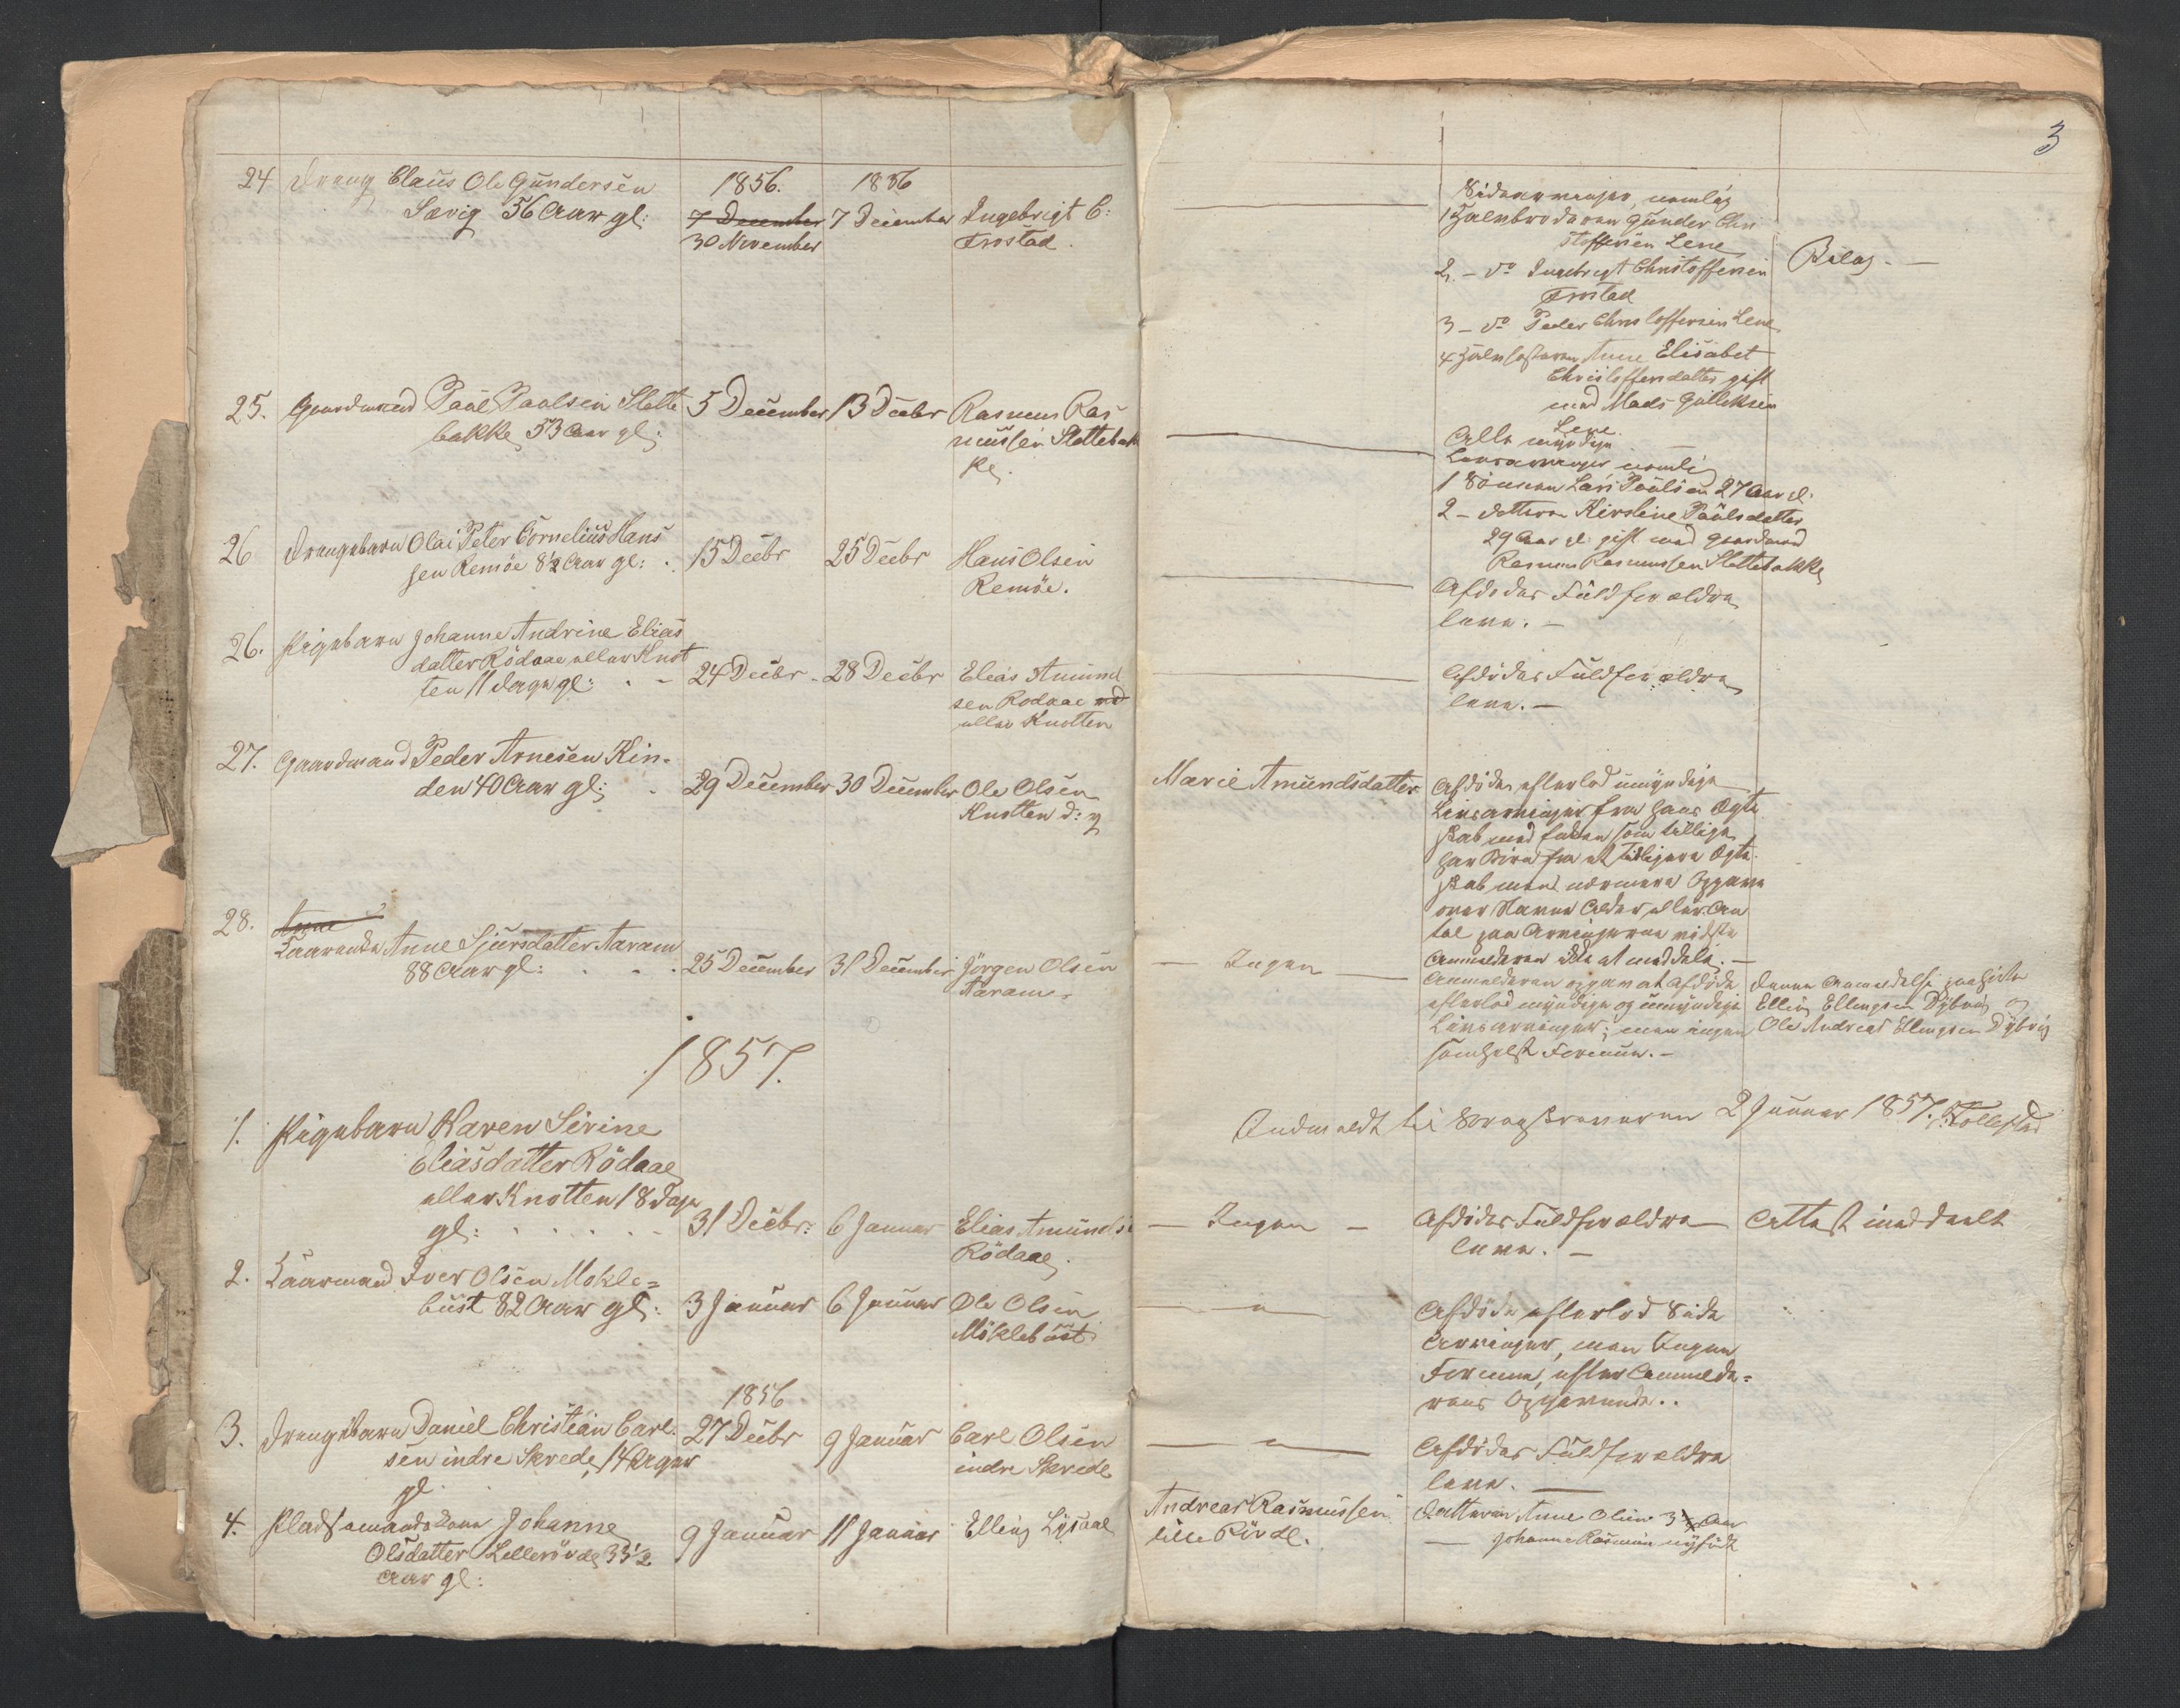 3
24 Dreng Claus Ole Gundersen
Sævig 56 Aar gl:
1856.
7 December
30 November
1856
7 December
Ingebrigt C:
Frostad.
Sidearvinger, nemlig
1 Halvbroderen Gunder Chri
stoffersen Lene
2 - do Ingebrigt Christoffersen
Frostad
3 - do Peder Christoffersen Lene
4 Halvsøsteren Anne Elisabet
Christoffersdatter gift
med Mads Gulleksen
Lene.
Alle myndige
Bilag. —
25. Gaardmand Paul Paulsen Slotte
bakke 53 Aar gl:
5 December
13 Decbr
Rasmus Ras
mussen Slottebak
ke.
Livsarvinger nemlig
1 Sønnen Lars Paulsen 27 Aar gl.
2 - Datteren Kirstine Paulsdatter
29 Aar gl: gift med Gaardmand
Rasmus Rasmussen Slottebakke
26 Drengebarn Olai Peter Cornelius Hans
sen Remöe 8½ Aar gl: .
15 Decbr
25 Decbr
Hans Olsen
Remöe.
Afdødes Fuldforældre
leve. —
26. Pigebarn Johanne Andrine Elias
datter Rödaae eller Knot
ten 11 Dage gl: . -
24 Decbr -
28 Decbr
Elias Amund
sen Rodaae
eller Knotten
Afdödes Fuldforældre
leve. —
27. Gaardmand Peder Arnesen Kin-
den 40 Aar gl: .
29 December
30 December
Ole Olsen
Knotten d: y
Marie Amundsdatter
Afdøde efterlod umyndige
Livsarvinger fra hans Ægte
skab med Enken som tillige
har Børn fra et tidligere Ægte-
skab men nærmere Opgave
over Navne Alder eller An
tal paa Arvingerne vidste
Anmelderen ikke at meddele. —
28.
Kaarenke Anne Sjursdatter Aaram
88 Aar gl: . . .
25 December
31 December
Jörgen Olsen
Aaram.
— Ingen —
Anmelderen opgav at Afdöde
efterlod myndige og umyndige
Livsarvinger; men ingen
somhelst Formue. —
Denne Anmeldelse paahørte
Elling Ellingsen Dybvig og
Ole Andreas Ellingsen Dybvig
1857.
Indmeldt til Sorenskriveren 2 Januar 1857. Kollestad
1. Pigebarn Karen Sirine
Eliasdatter Rödaae
eller Knotten 18 Dage
gl: . . . . . -
31 Decbr:
6 Januar
Elias Amunds
Rödaae.
— Ingen —
Afdödes Fuldforældre
leve. —
Attest meddeelt
2. Kaarmand Iver Olsen Mokle=
bust 82 Aar gl:
3 Januar
6 Januar
Ole Olsen
Möklebust
— " —
Afdöde efterlod Side
Arvinger, men Ingen
Formue, efter Anmelde=
rens Opgivende..
3. Drengebarn Daniel Christian Carl-
sen indre Skrede, 14 Dage
gl.
1856
27 Decbr
9 Januar
Carl Olsen
indre Skrede
— " —
Afdödes Fuldforældre
leve. —
4. Pladsemandskone Johanne
Olsdatter Lillerövde 33½
Aar gl:
9 Januar
11 Januar
Elling Lysaae
Andreas Rasmussen
lille Rövde.
Datteren Anne Oline 3 Aar
— Johanne Rasmine nyfödt